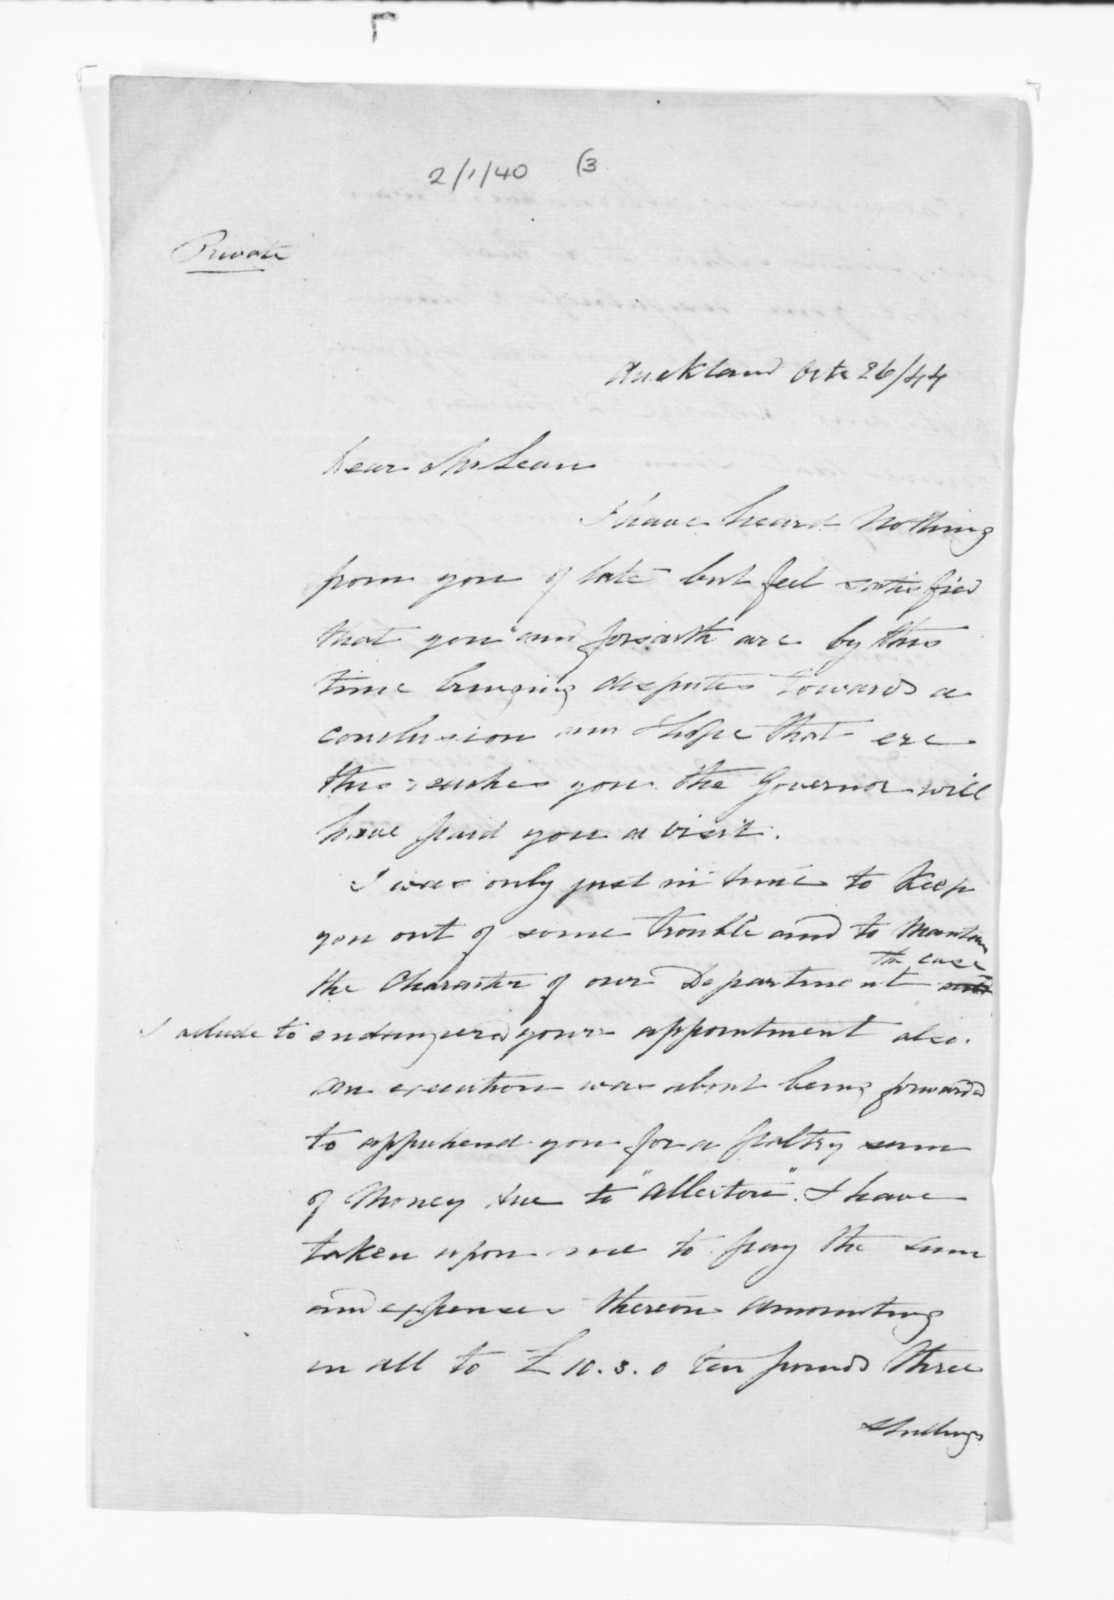 2/1/40 (3
Private
Auckland Octr 26/44
Dear McLean
I have heard nothing
from you of late but feel satisfied
that you and forsaith are by this
time bringing disputes towards a
conclusion and hope that ere
this reaches you the Governor will
have paid you a visit.
I was only just in time to Keep
you out of some trouble and to Maintain
the Character of our Department the case
I allude to endangered your appointment also.
an execution was about being forwarded
to apprehend you for a paltry sum
of Money due to "Allerton". I have
taken upon me to pay the sum
and expenses thereon amounting
in all to £10.3.0 ten pounds three
Shillings